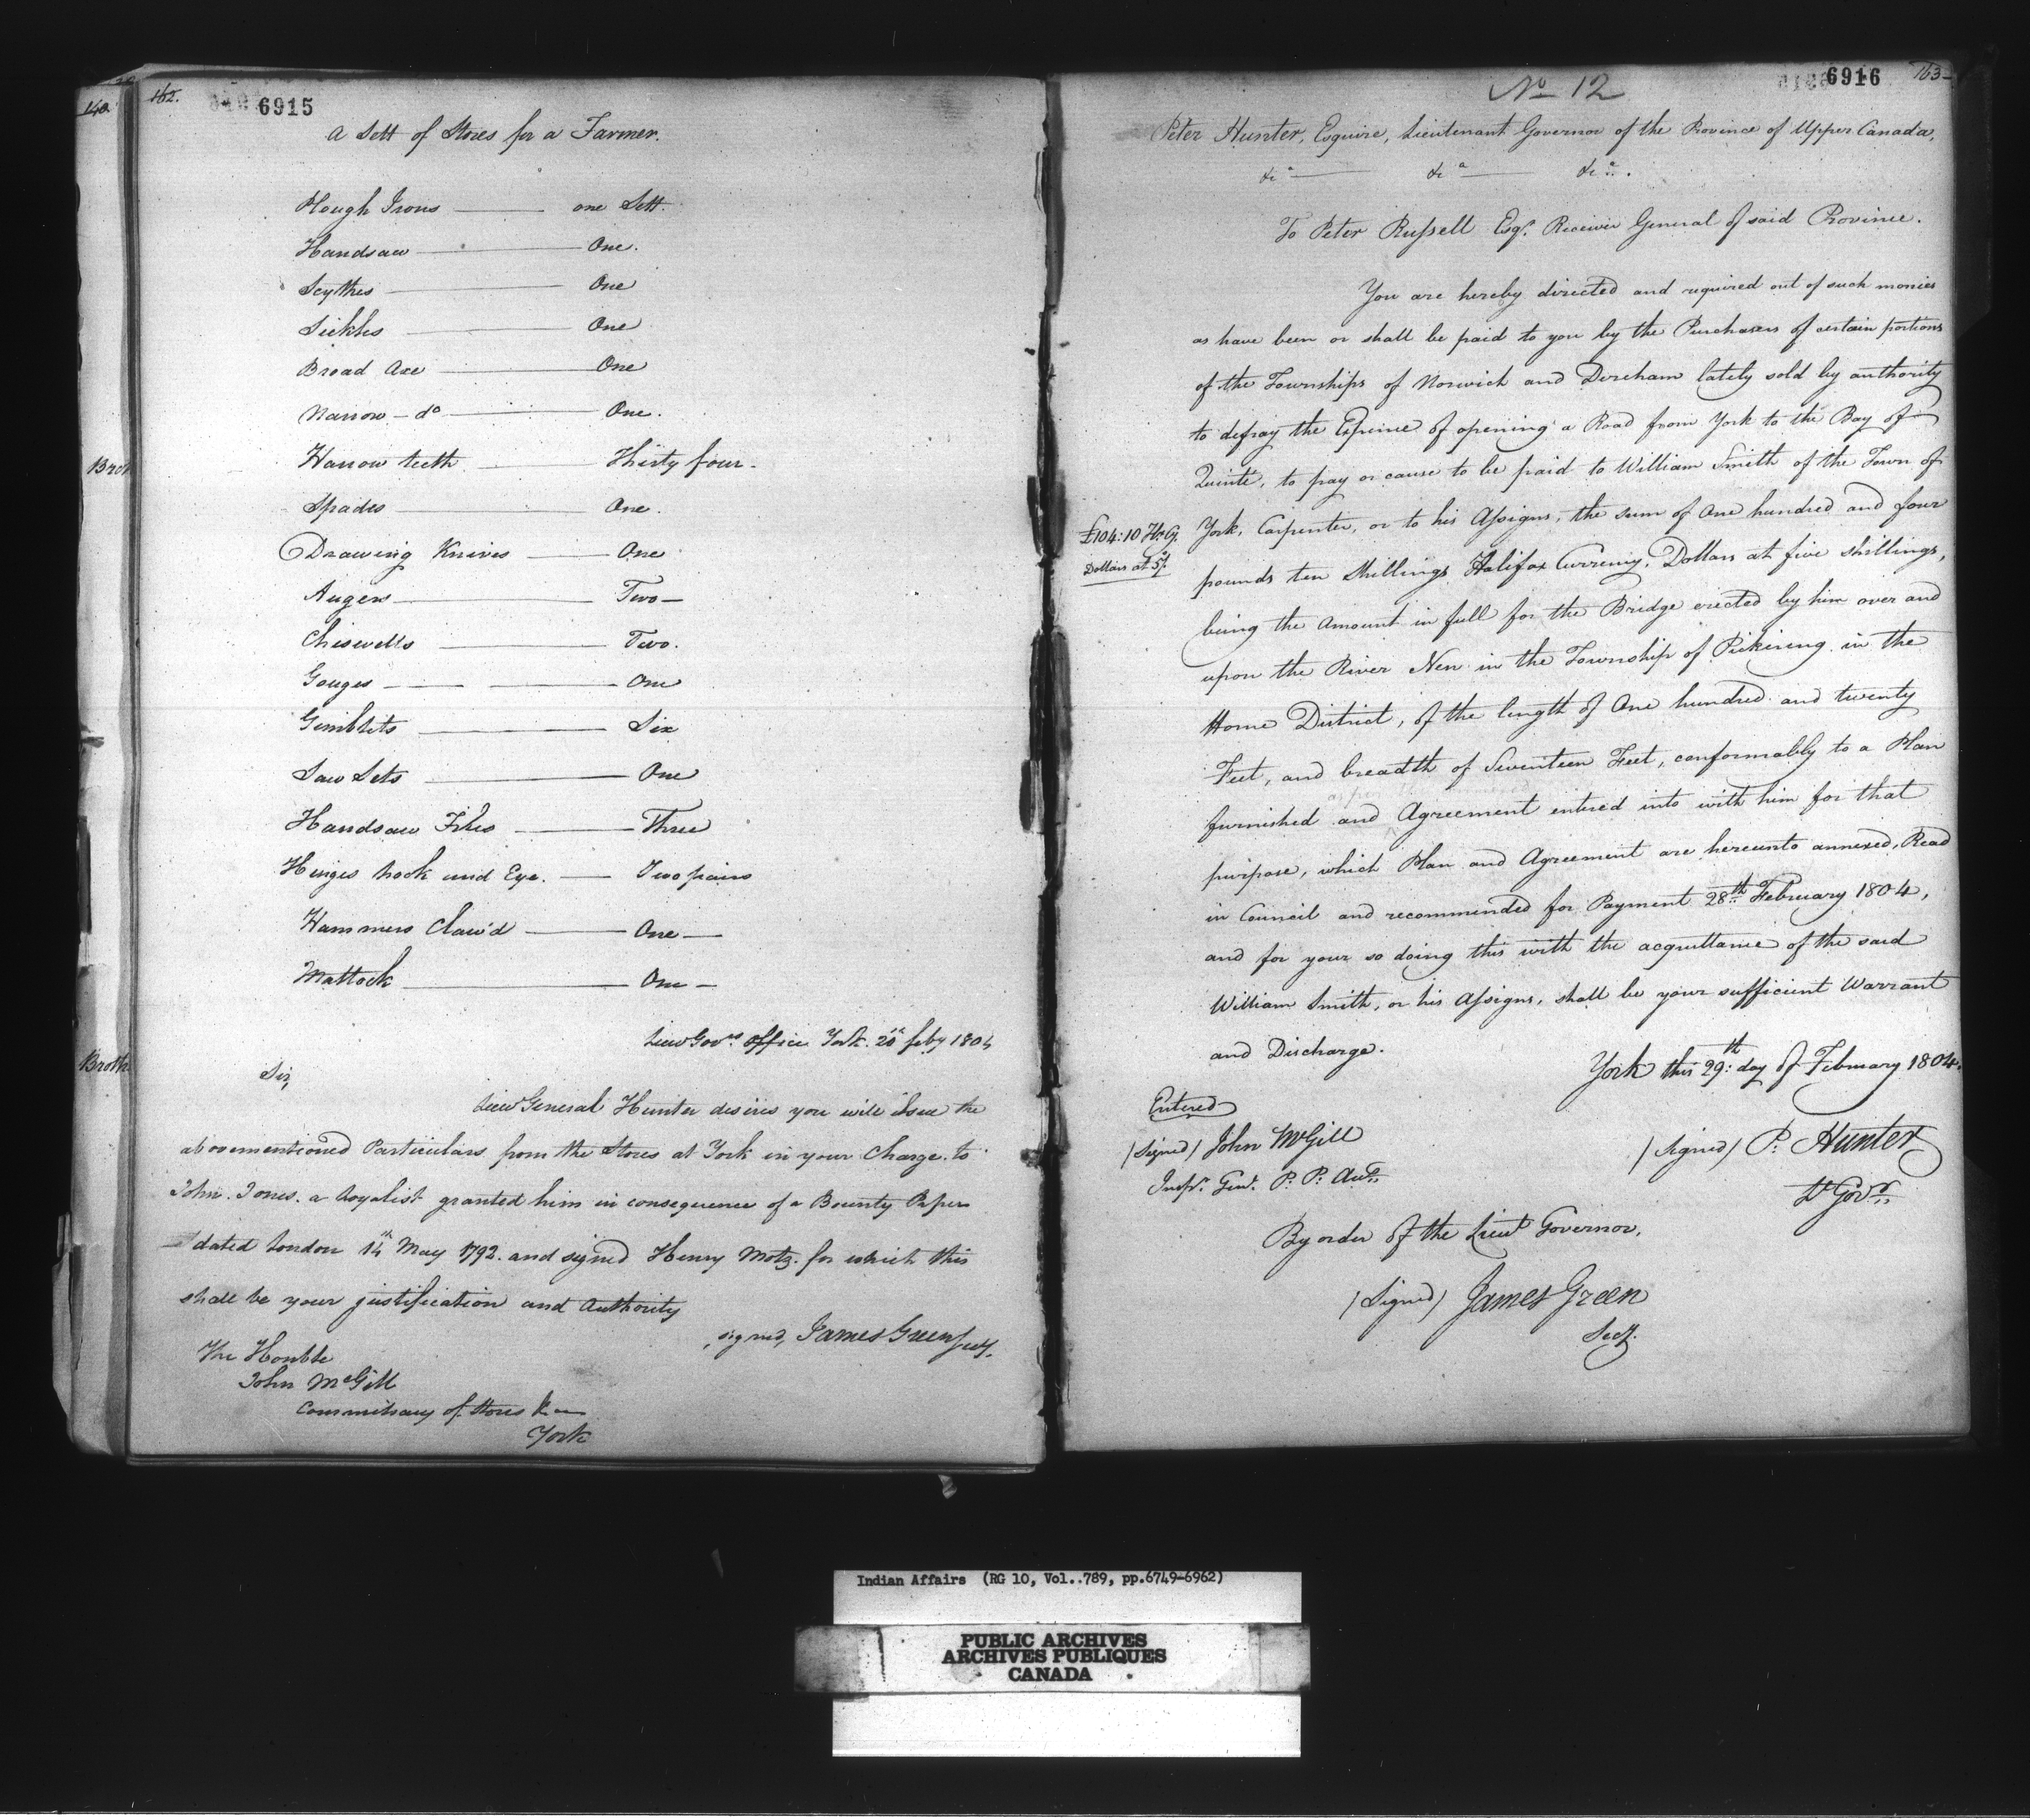 140.
Brot
Broth
162.
6915
a Sett of Stores for a Farmer.
Plough Irons — one Sett.
Handsaw — One.
Scythes — One
Sickles — One
Broad Axe — One
Narrow - do — One.
Harrow teeth — Thirty four.
Spades — One.
Drawing Knives — One
Augers — Two —
Chiswells — Two.
Gouges — One
Gimblets — Six
Saw Sets — One
Handsaw Files — Three
Hinges hook and Eye. — Two pairs
Hammers Claw'd — One —
Mattock — One —
Lieut Govrs Office York. 20th feby 1804
Sir,
Lieut General Hunter desires you will issue the
abovementioned Particulars from the Stores at York in your Charge to
John Jones. a Loyalist granted him in consequence of a Bounty Paper
dated London 14th May 1792. and signed Henry Motz. for which this
shall be your justification and Authority
signed, James Green Secy.
The Honble
John McGill
Commissary of Stores &c
York
No 12
6916
163
Peter Hunter, Esquire, Lieutenant Governor of the Province of Upper Canada,
&ca — &ca — &ca.
To Peter Russell Esqr. Receiver General of said Province.
You are hereby directed and required out of such monies
as have been or shall be paid to you by the Purchasers of certain portions
of the Townships of Norwich and Dereham lately sold by authority
to defray the Expence of opening a Road from York to the Bay of
Quinté, to pay or cause to be paid to William Smith of the Town of
£104:10 H.Cy.
Dollars at 5/.
York, Carpenter, or to his Assigns, the sum of One hundred and four
pounds ten Shillings Halifax Currency, Dollars at five shillings,
being the Amount in full for the Bridge erected by him over and
upon the River Nen in the Township of Pickering in the
Home District, of the length of One hundred and twenty
Feet, and breadth of Seventeen Feet, conformably to a Plan
furnished and Agreement entered into with him for that
purpose, which Plan and Agreement are hereunto annexed, Read
in Council and recommended for Payment 28th February 1804,
and for your so doing this with the acquittance of the said
William Smith, or his Assigns, shall be your sufficient Warrant
and Discharge.
York this 29th day of February 1804.
Entered
(Signed) John McGill
Inspr. Genl. P. P. Accts.
(Signed) P. Hunter
Lt Govr.
By order of the Lieut Governor,
(Signed) James Green
Secy.
Indian Affairs (RG 10, Vol..789, pp.6749-6962)
PUBLIC ARCHIVES
ARCHIVES PUBLIQUES
CANADA